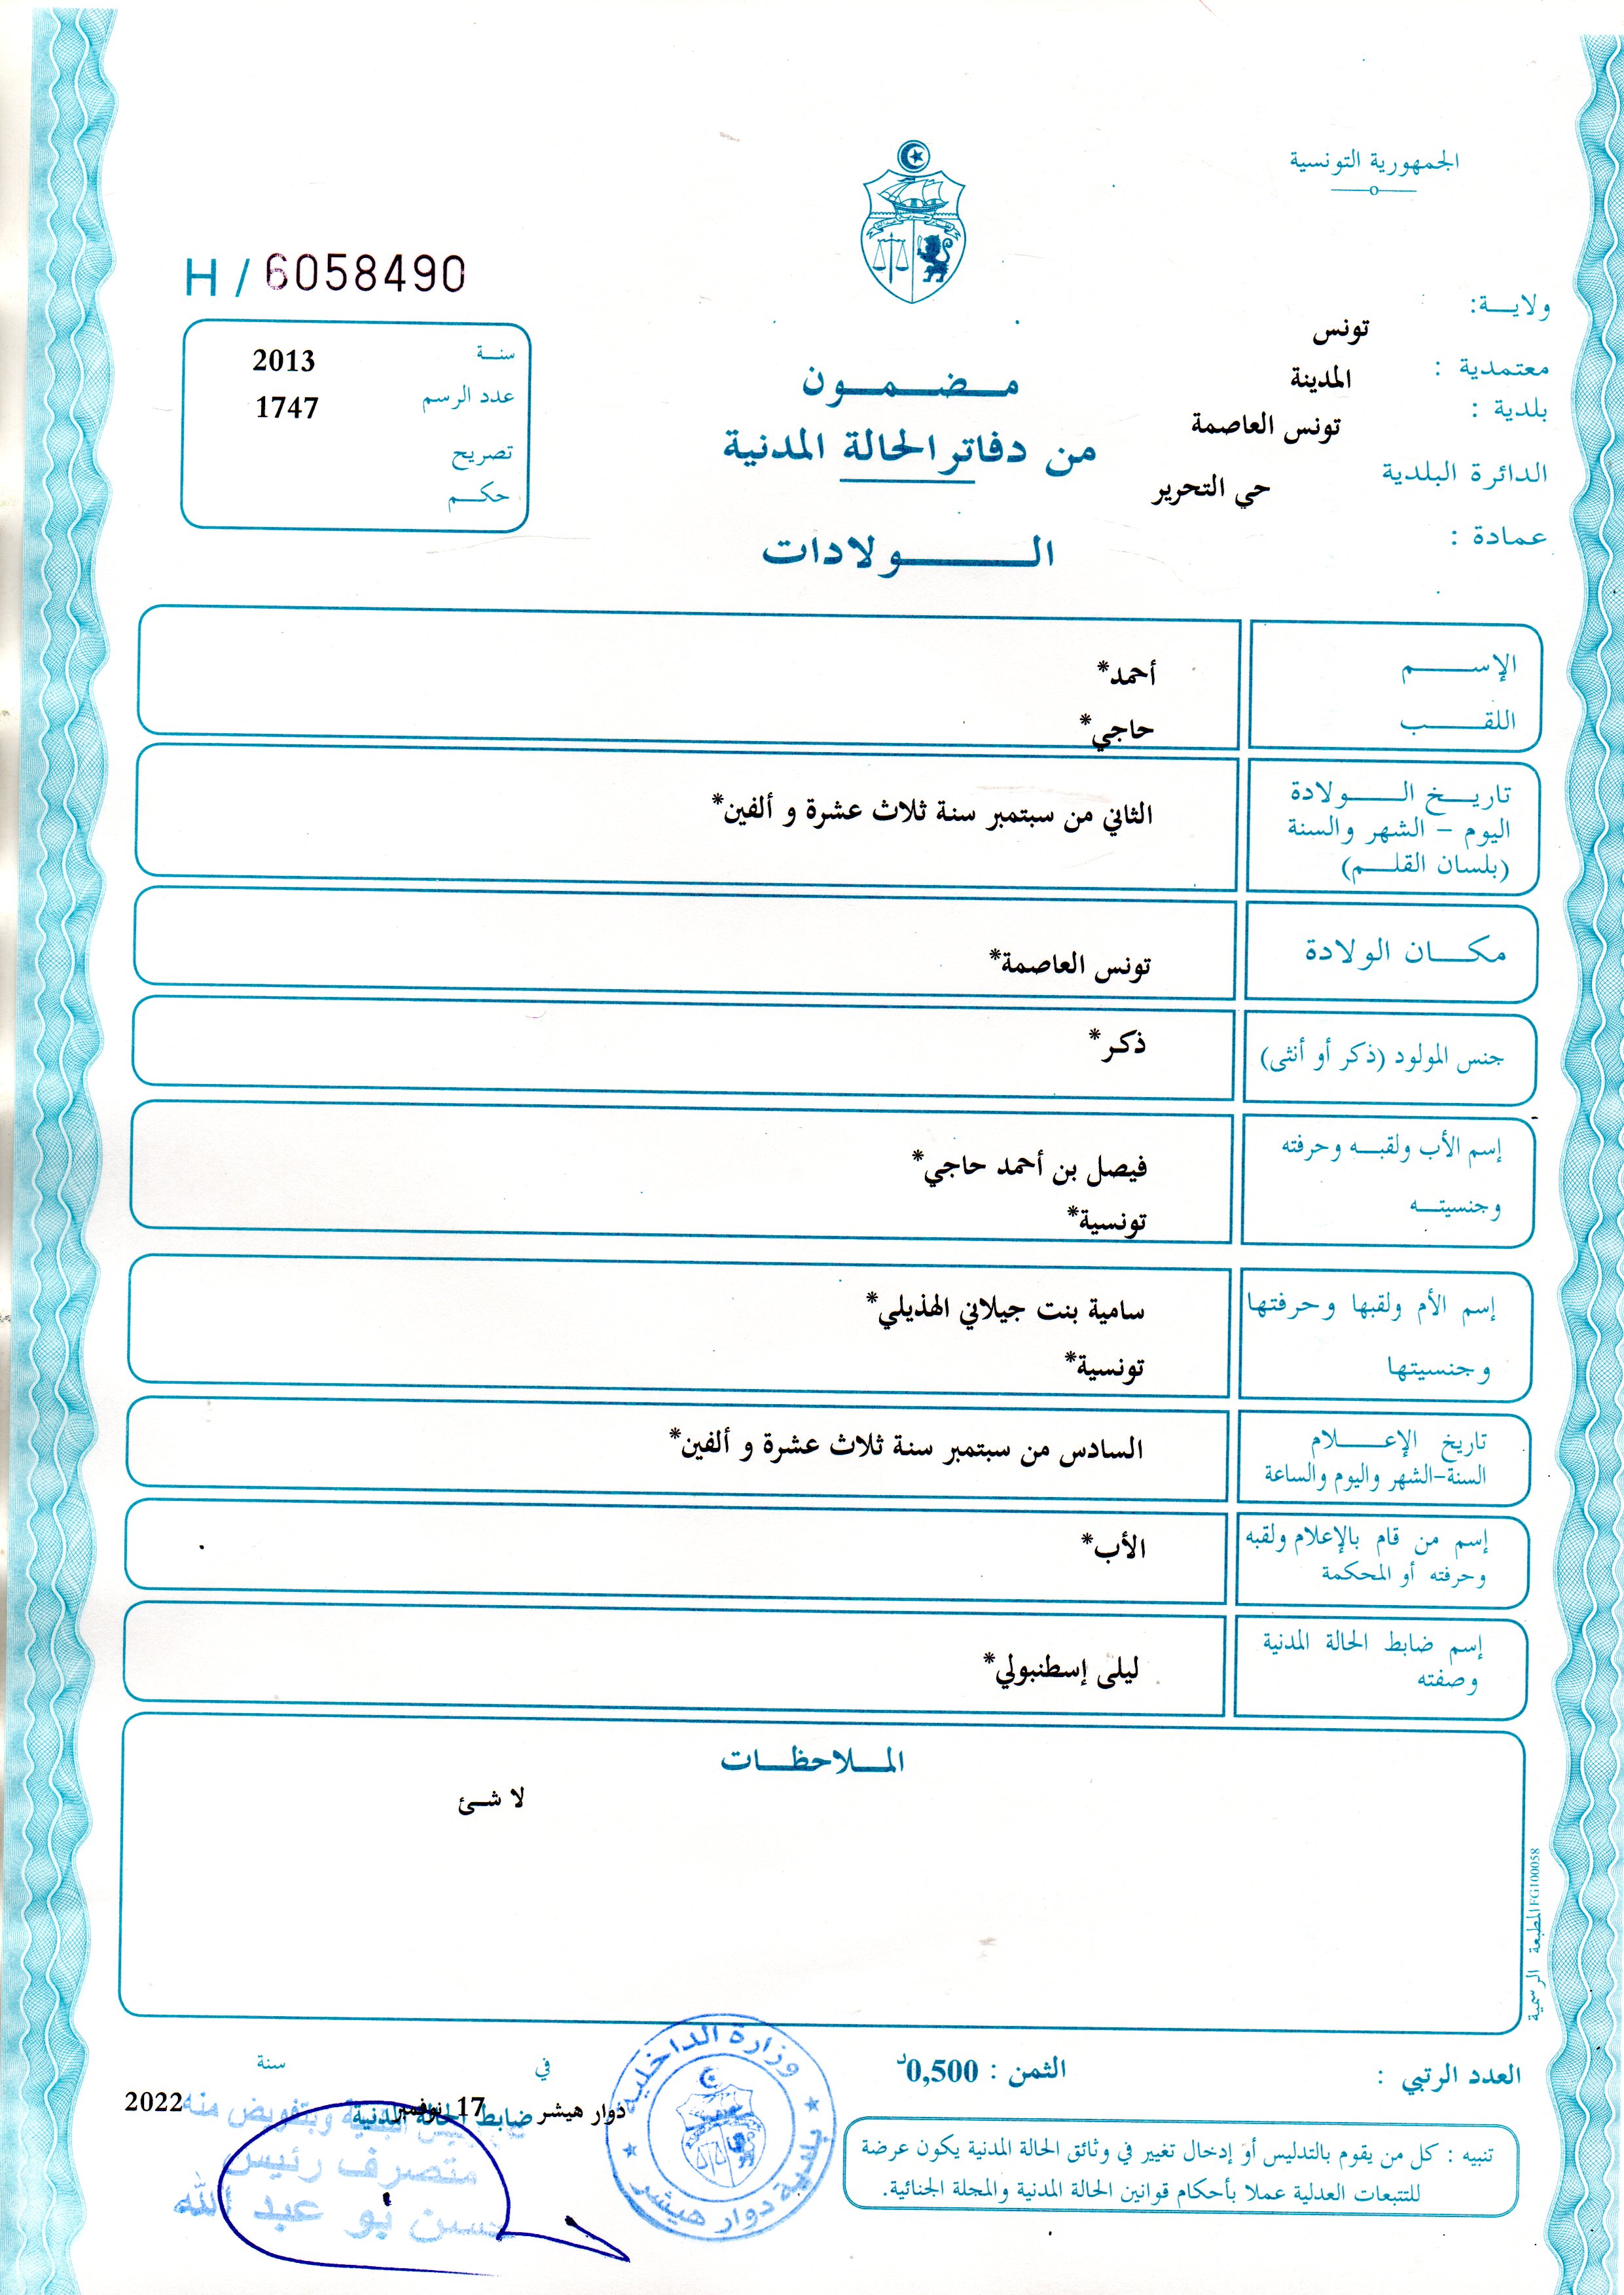 الجمهورية التونسية
H / 6058490
ولايـــة: تونس
معتمدية : المدينة
بلدية : تونس العاصمة
الدائرة البلدية حي التحرير
عمادة :
سنـة 2013
عدد الرسم 1747
تصريح
حكـم
مـضـمـون
من دفاتر الحالة المدنية
الـــولادات
الإســـم أحمد*
اللقـــب حاجي*
تاريـخ الـــولادة
اليوم - الشهر والسنة
(بلسان القلـــم)
الثاني من سبتمبر سنة ثلاث عشرة و ألفين*
مكـــان الولادة تونس العاصمة*
جنس المولود (ذكر أو أنثى) ذكـر*
إسم الأب ولقبـه وحرفته فيصل بن أحمد حاجي*
وجنسيتـه تونسية*
إسم الأم ولقبها وحرفتها سامية بنت جيلاني الهذيلي*
وجنسيتها تونسية*
تاريخ الإعـــلام
السنة-الشهر واليوم والساعة
السادس من سبتمبر سنة ثلاث عشرة و ألفين*
إسم من قام بالإعلام ولقبه
وحرفته أو المحكمة
الأب*
إسم ضابط الحالة المدنية
وصفته
ليلى إسطنبولي*
المـلاحظـات
لا شـئ
المطبعة الرسمية FG100058
العدد الرتبي :
الثمن : 0,500د
في سنة
دوار هيشر 17 نوفمبر 2022
ضابط الحالة المدنية
وبتفويض منه
متصرف رئيس
حسن بو عبد الله
وزارة الداخلية
بلدية دوار هيشر
تنبيه : كل من يقوم بالتدليس أو إدخال تغيير في وثائق الحالة المدنية يكون عرضة
للتتبعات العدلية عملا بأحكام قوانين الحالة المدنية والمجلة الجنائية.